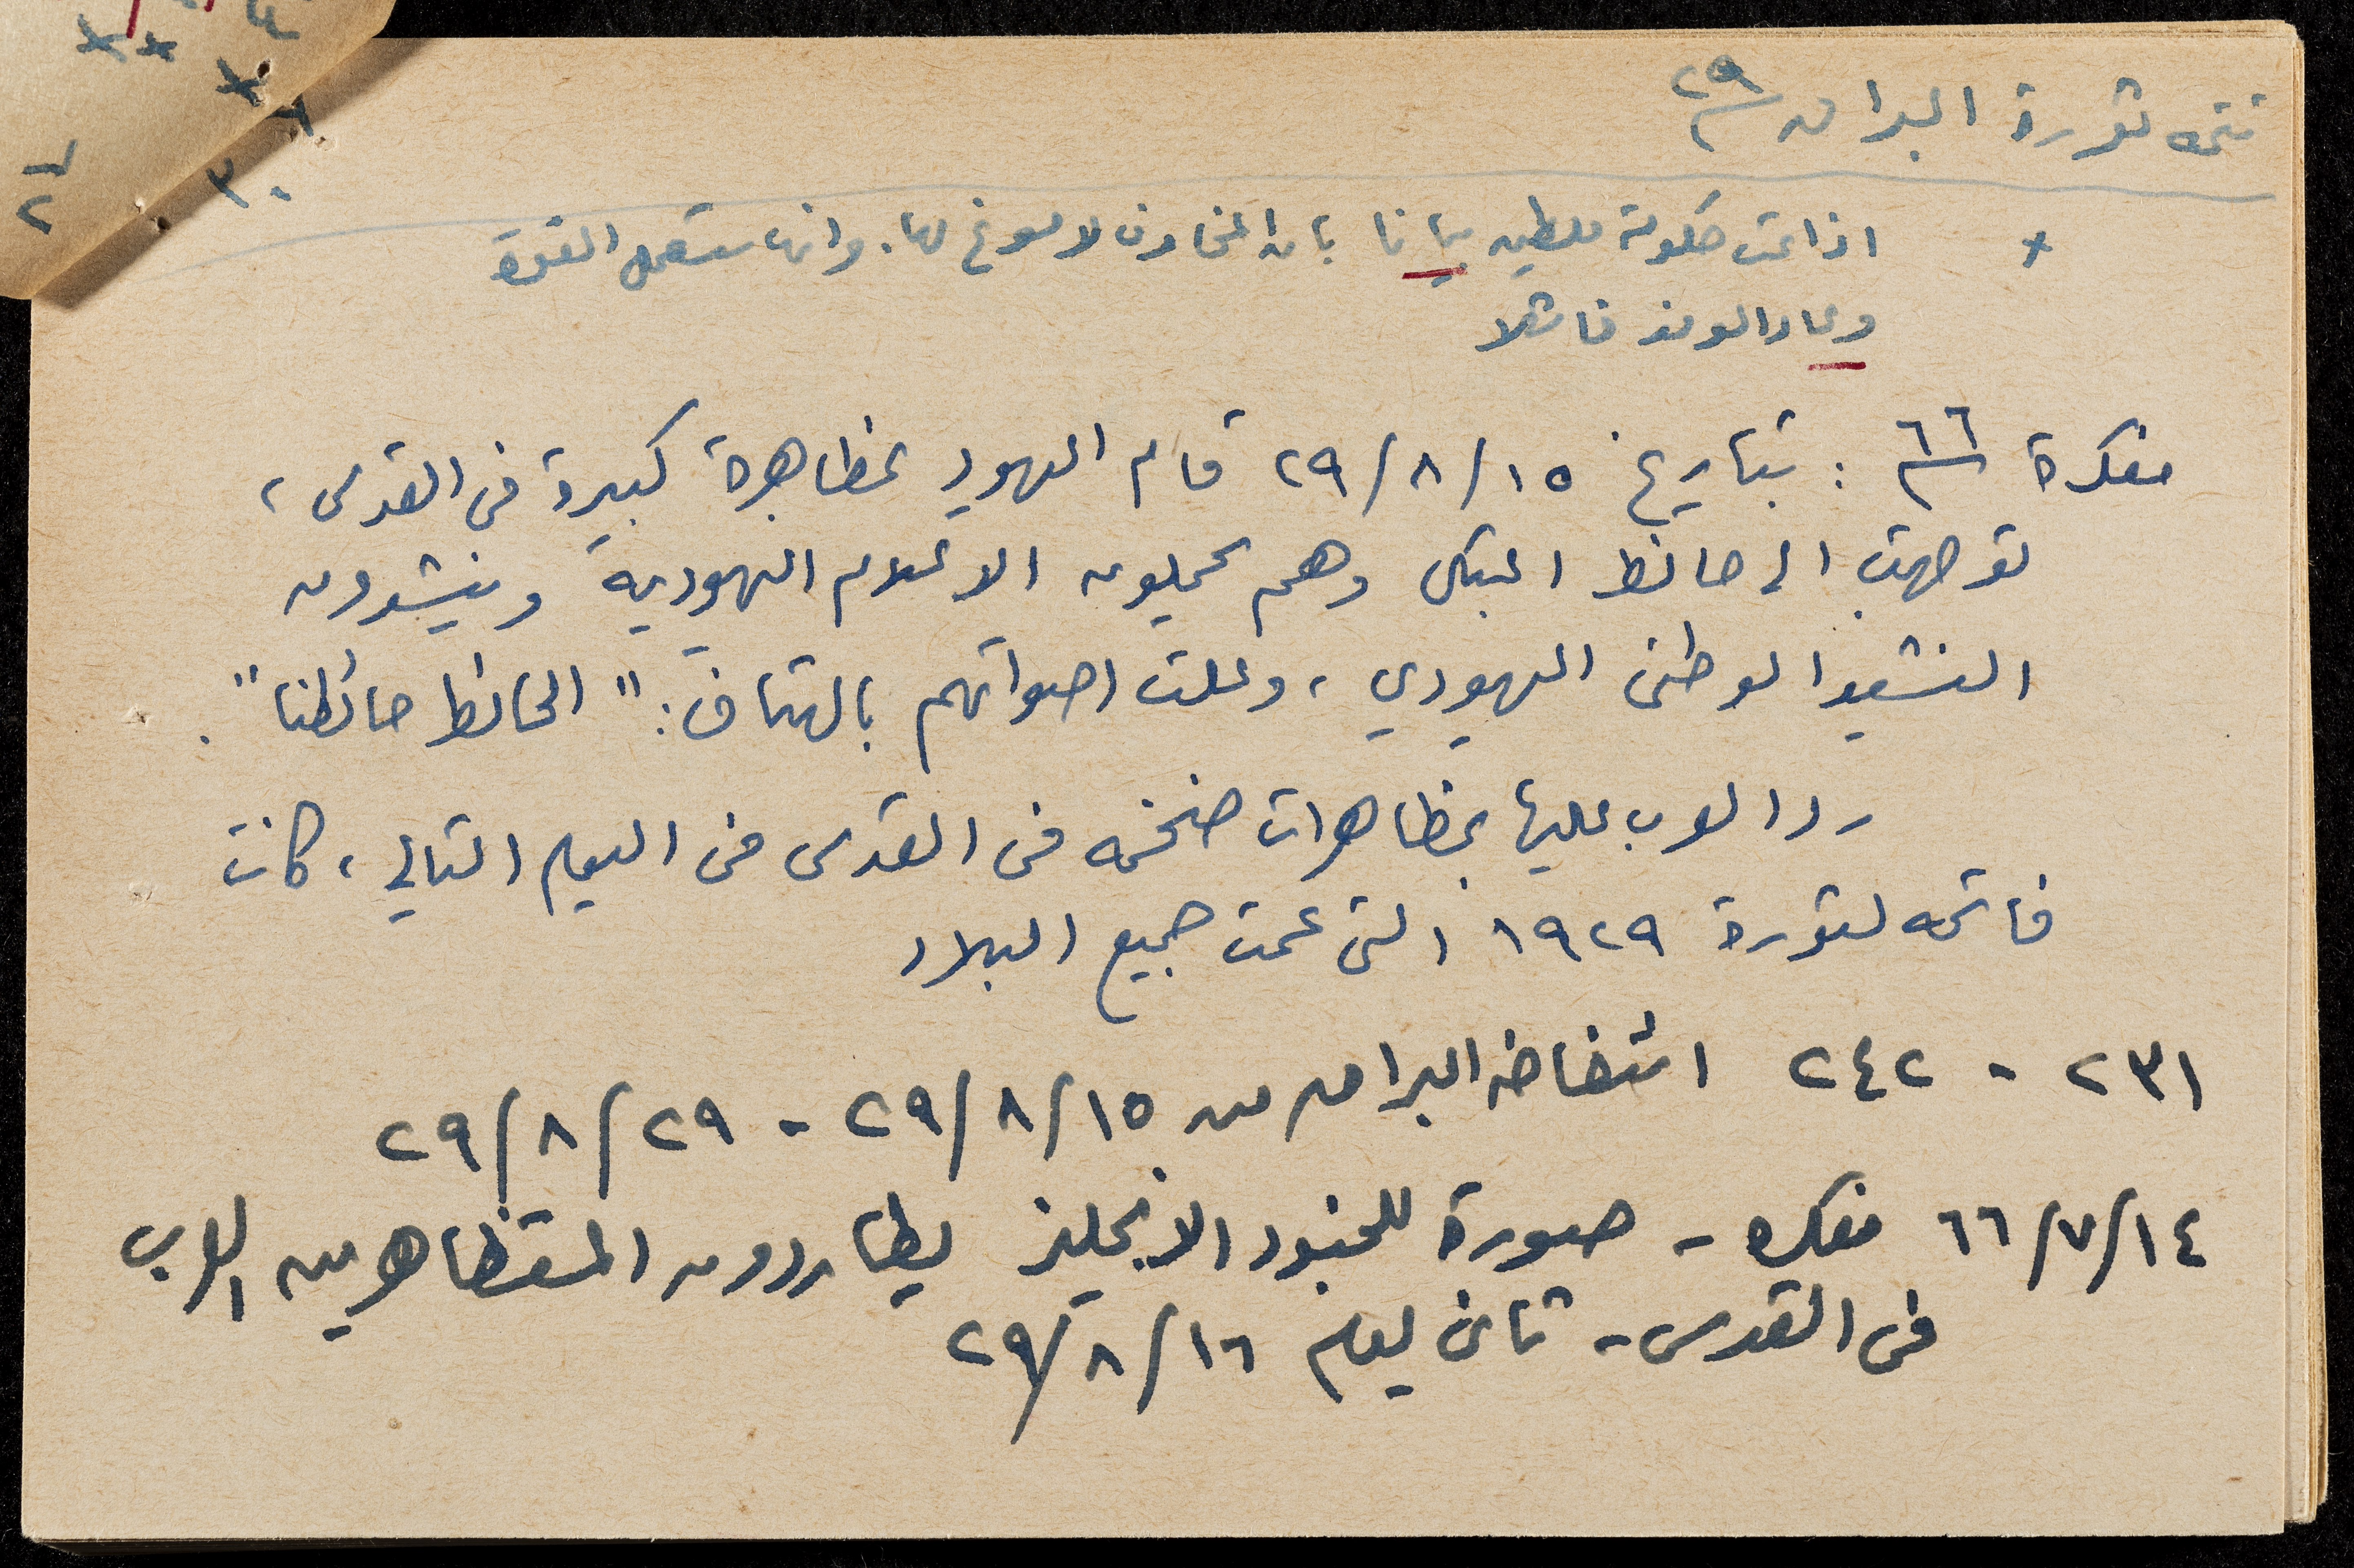 تتمه ثورة البراق ٢٩
x اذاعت حكومة فلسطين بيانا بان المخاوف لا مسوغ لها. وانها ستعمل القوة
وعاد الوفد فاشلا
مفكرة ٦٦ : بتاريخ ١٥/٨/٢٩ قام اليهود بمظاهرة كبيرة في القدس،
توجهت الى حائط المبكى وهم يحملون الاعلام اليهودية وينشدون
النشيد الوطني اليهودي، وعلت اصواتهم بالهتاف: "الحائط حائطنا".
رد العرب عليها بمظاهرات ضخمه في القدس في اليوم التالي، كانت
فاتحه لثورة ١٩٢٩ التي عمت جميع البلاد
٢٣١ - ٢٤٢ انتفاضة البراق من ١٥/٨/٢٩ - ٢٩/٨/٢٩
١٤/٧/٦٦ مفكره - صورة للجنود الانجليز يطاردون المتظاهرين العرب
في القدس - ثاني يوم ١٦/٨/٢٩